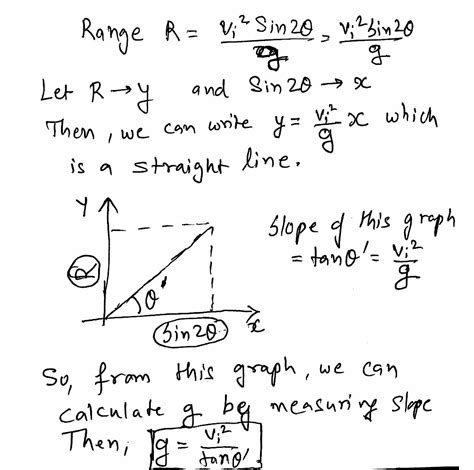 Range R = vᵢ² Sin2θ / g = vᵢ² Sin2θ / g
Let R → y and Sin2θ → x
Then, we can write y = vᵢ²/g x which
is a straight line.
y
R
θ'
Sin2θ
x
Slope of this graph
= tanθ' = vᵢ²/g
So, from this graph, we can
calculate g by measuring slope
Then, g = vᵢ²/tanθ'